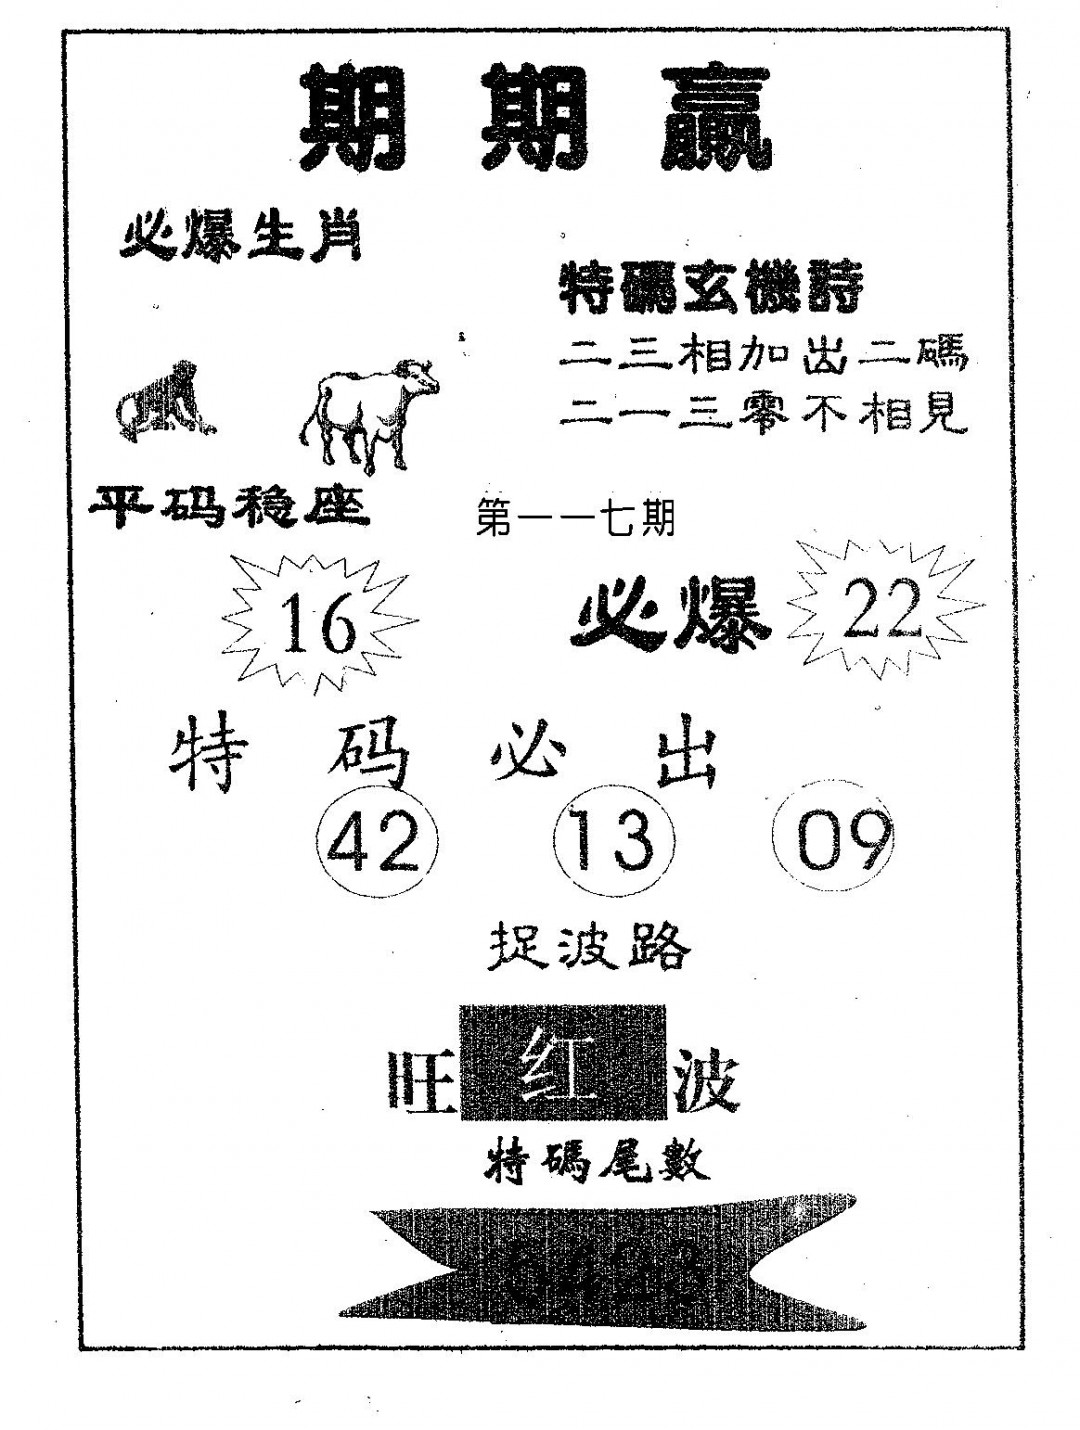 期期赢
必爆生肖
特碼玄機詩
二三相加出二碼
二一三零不相見
平码稳座
第一一七期
16
必爆 22
特码必出
42 13 09
捉波路
旺红波
特碼尾數